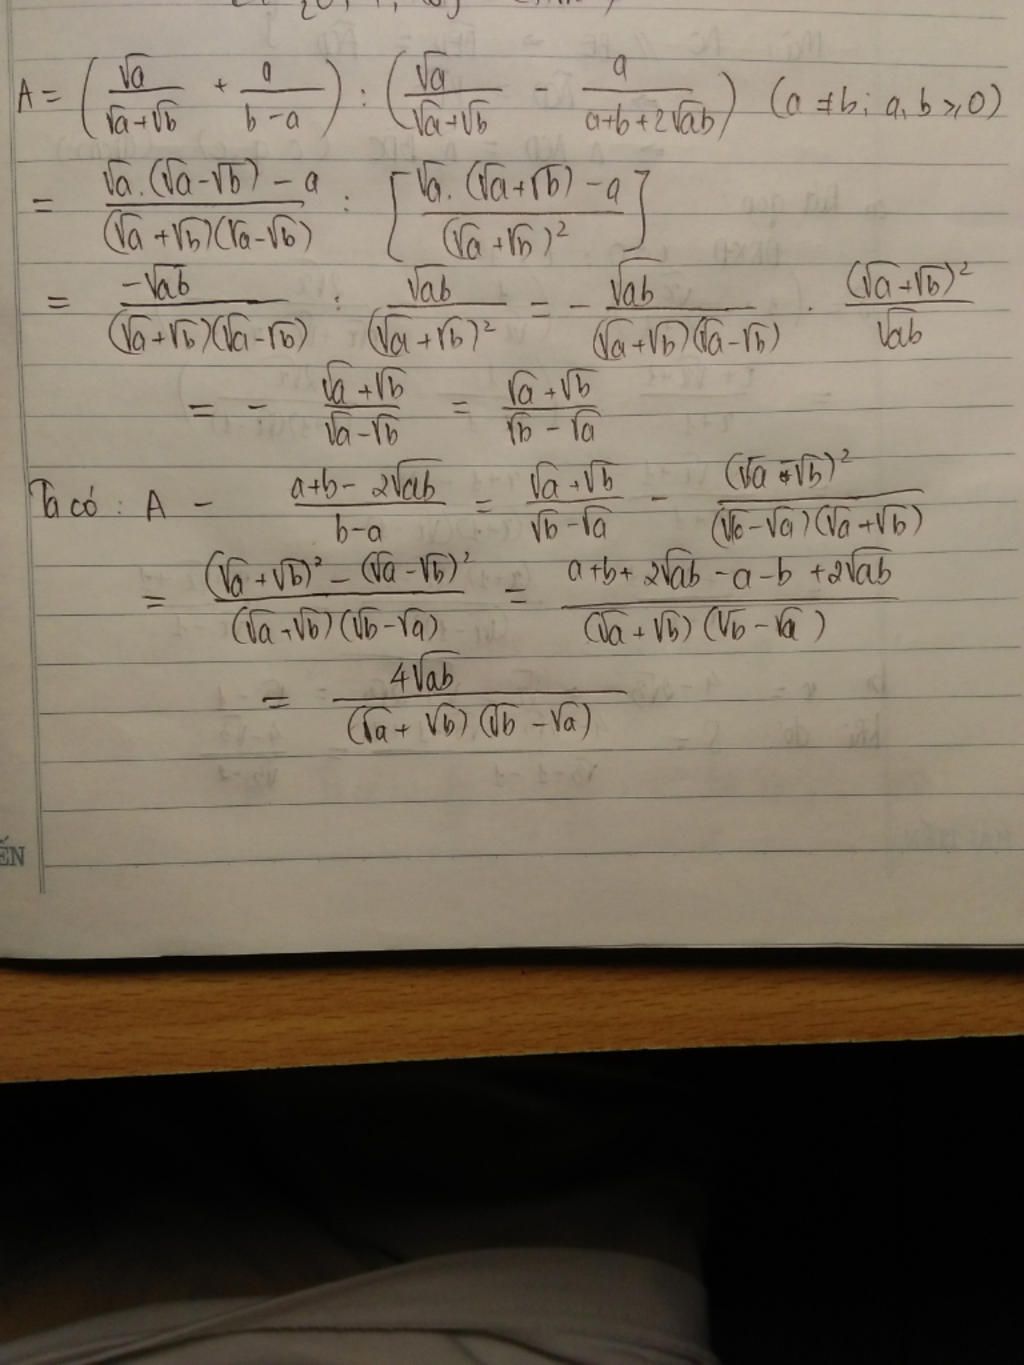 A = (√a/(√a+√b) + a/(b-a)) : (√a/(√a+√b) - a/(a+b+2√ab)) (a ≠ b; a, b ≥ 0)
= (√a.(√a-√b) - a)/((√a+√b)(√a-√b)) : [(√a.(√a+√b) - a)/(√a+√b)²]
= -√ab/((√a+√b)(√a-√b)) : √ab/(√a+√b)² = - √ab/((√a+√b)(√a-√b)) . (√a+√b)²/√ab
= - (√a+√b)/(√a-√b) = (√a+√b)/(√b-√a)
Ta có : A - (a+b-2√ab)/(b-a) = (√a+√b)/(√b-√a) - (√a-√b)²/((√b-√a)(√a+√b))
= ((√a+√b)² - (√a-√b)²)/((√a+√b)(√b-√a)) = (a+b+2√ab-a-b+2√ab)/((√a+√b)(√b-√a))
= 4√ab/((√a+√b)(√b-√a))
ẾN